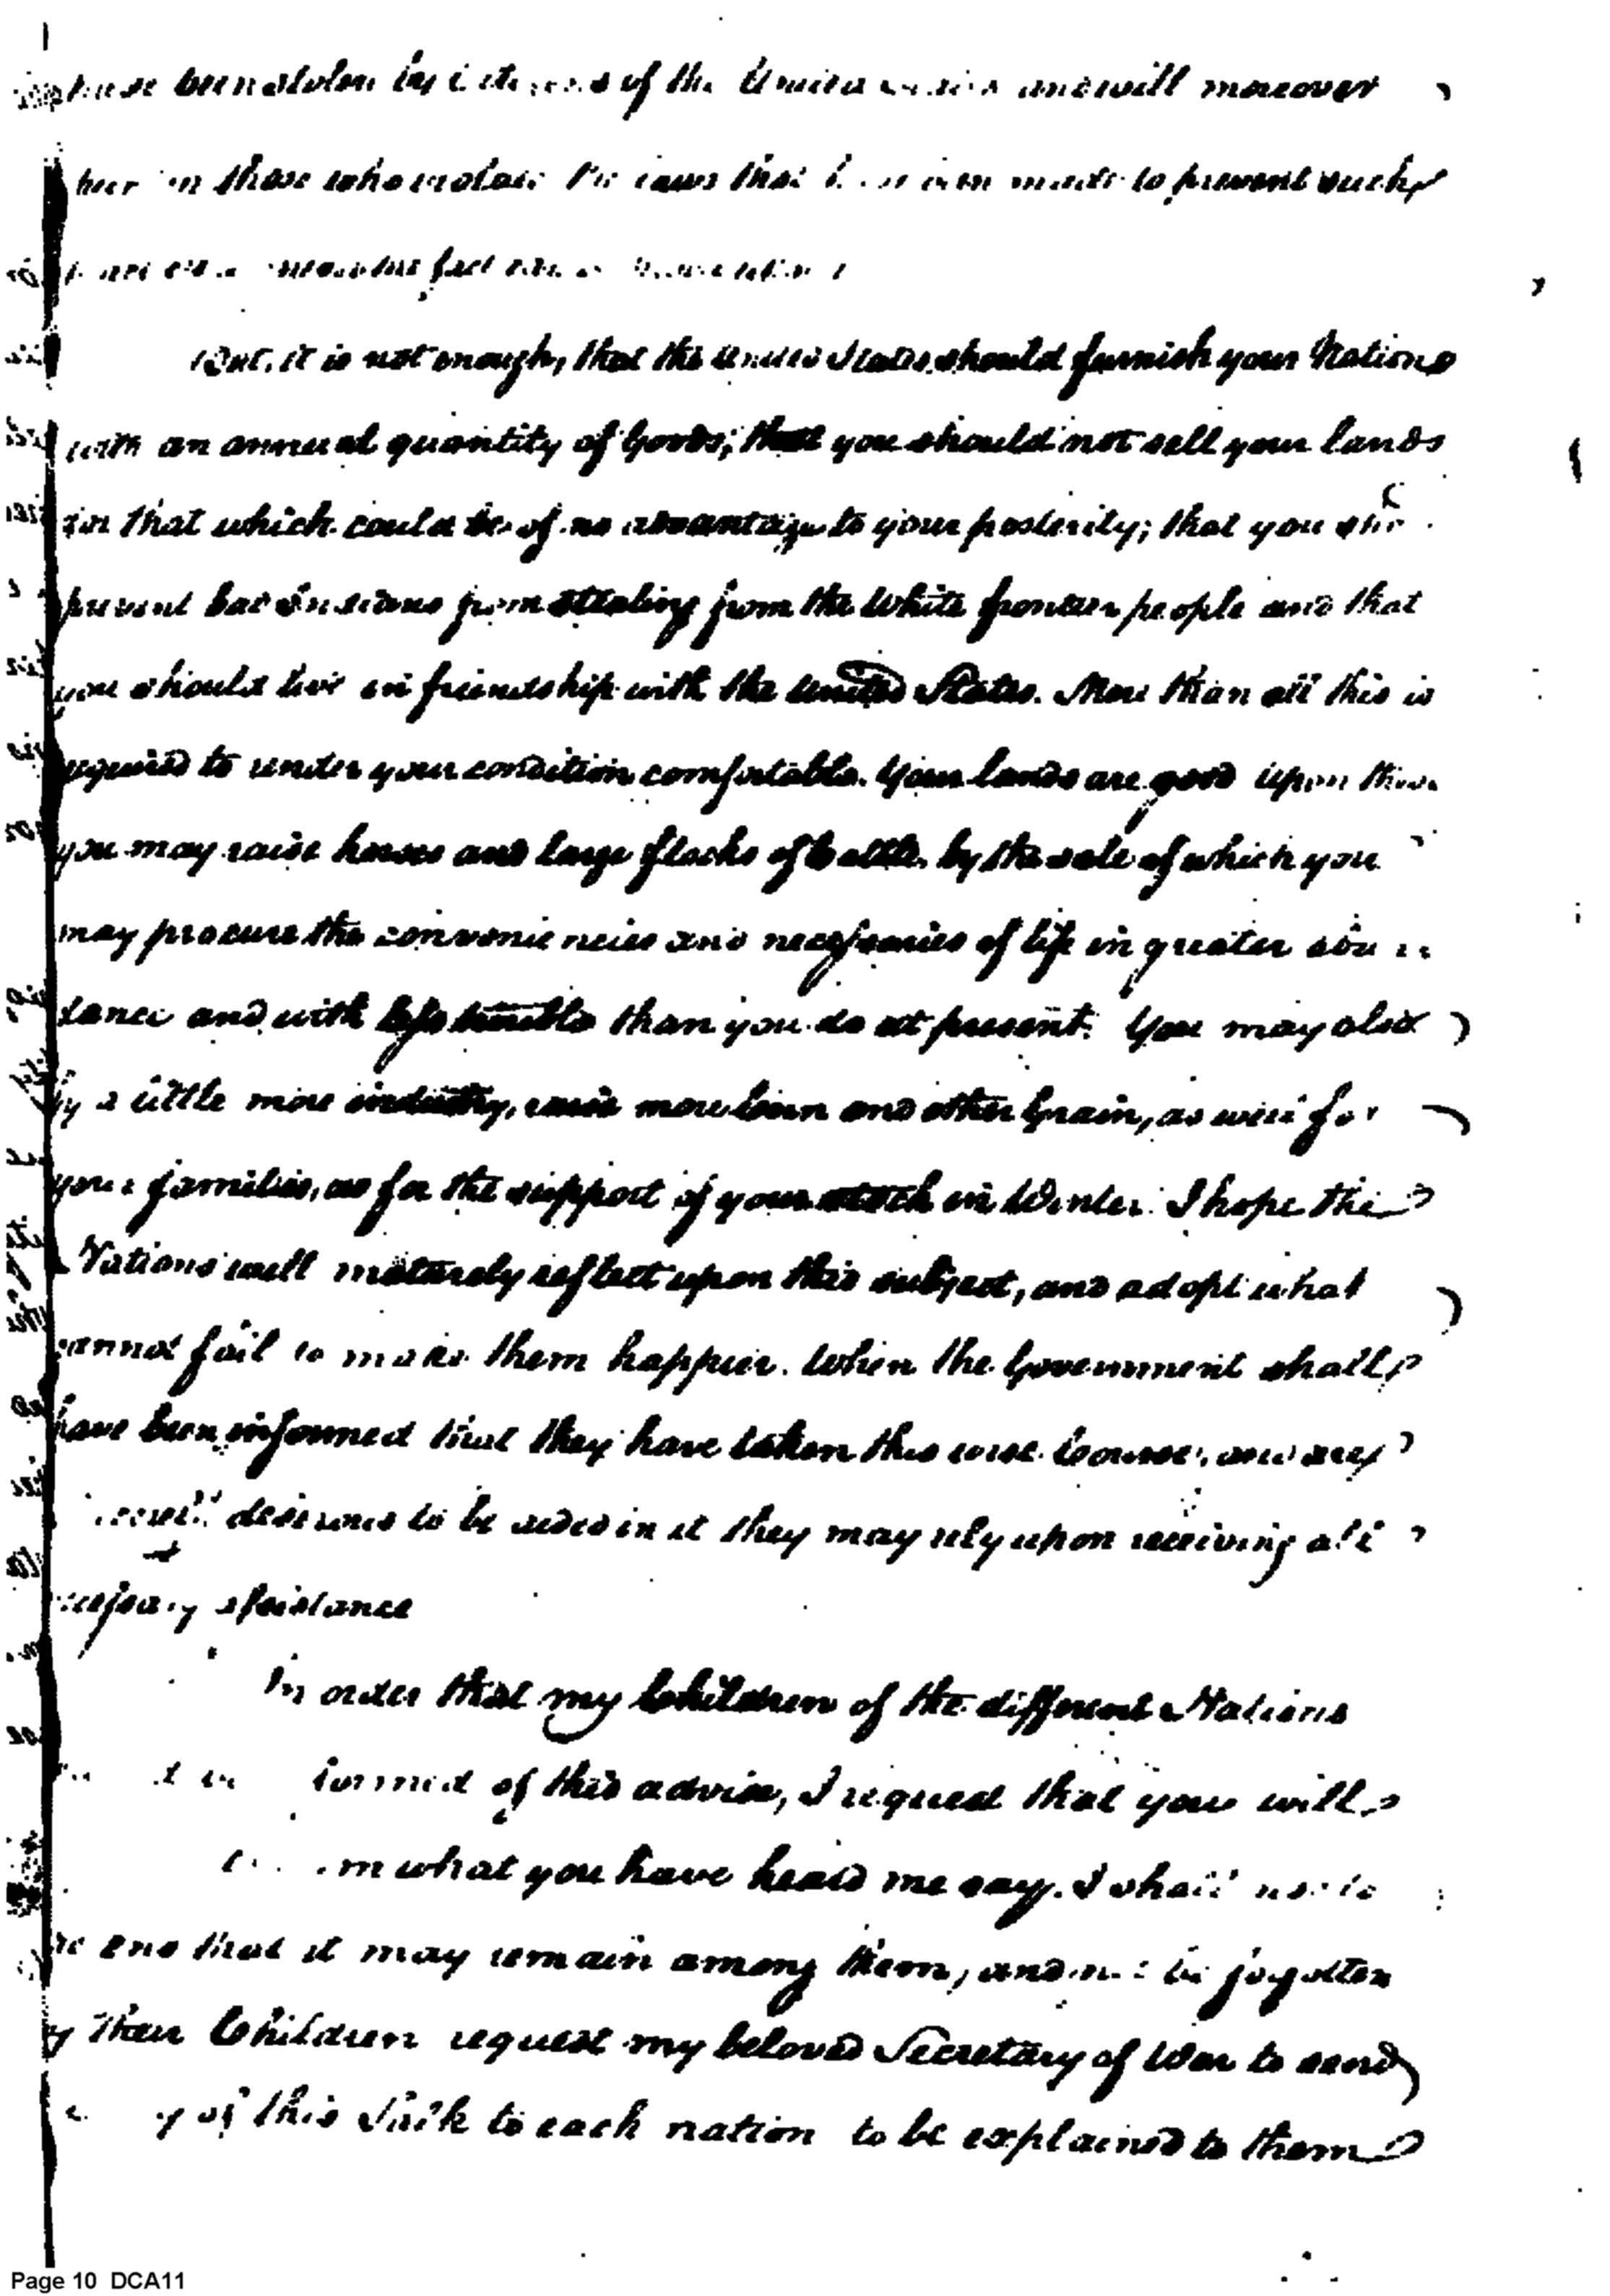 have been stolen by citizens of the United States and will moreover
those who violate the laws that have been made to prevent such
fact
But, it is not enough, that the United States should furnish your Nations
with an annual quantity of Goods; that you should not sell your lands
for that which could be of no advantage to your posterity; that you sho
prevent bad Indians from stealing from the White frontier people and that
you should live in friendship with the United States. More than all this is
required to render your condition comfortable. Your lands are good upon these
you may raise horses and large flocks of Cattle by the sale of which you
may procure the conveniencies and necessaries of life in greater abun
dance and with less trouble than you do at present. You may also
by a little more industry, raise more Corn and other Grain, as well for
your families, as for the support of your stock in Winter. I hope the
Nations will maturely reflect upon this subject, and adopt what
cannot fail to make them happier. When the Government shall
have been informed that they have taken this wise Course, and are
desirous to be aided in it they may rely upon receiving all
necessary assistance
In order that my Children of the different Nations
informed of this advice, I request that you will
what you have heard me say. I shall
end that it may remain among them, and not be forgotten
by their Children request my beloved Secretary of War to send
of this Talk to each nation to be explained to them
Page 10 DCA11